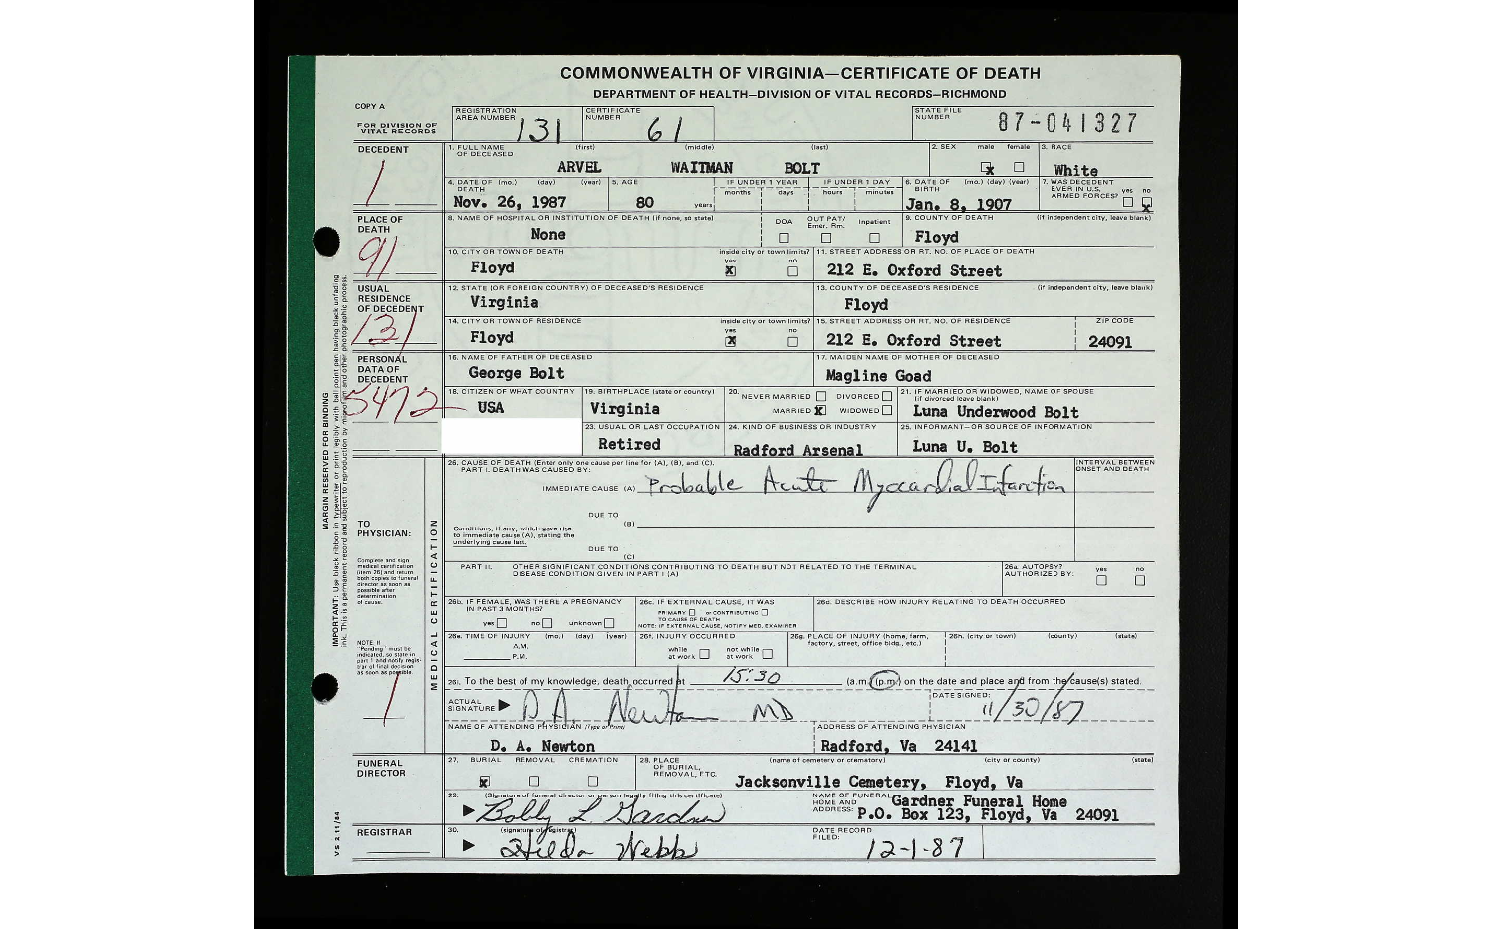 COMMONWEALTH OF VIRGINIA—CERTIFICATE OF DEATH
DEPARTMENT OF HEALTH—DIVISION OF VITAL RECORDS—RICHMOND
COPY A
FOR DIVISION OF VITAL RECORDS
REGISTRATION AREA NUMBER 131
CERTIFICATE NUMBER 61
STATE FILE NUMBER 87-041327
DECEDENT
1
1. FULL NAME OF DECEASED (first) (middle) (last)
ARVEL WAITMAN BOLT
2. SEX male female
x
3. RACE
White
4. DATE OF DEATH (mo.) (day) (year)
Nov. 26, 1987
5. AGE
80 years
IF UNDER 1 YEAR months days
IF UNDER 1 DAY hours minutes
6. DATE OF BIRTH (mo.) (day) (year)
Jan. 8, 1907
7. WAS DECEDENT EVER IN U.S. ARMED FORCES? yes no
x
PLACE OF DEATH
91
8. NAME OF HOSPITAL OR INSTITUTION OF DEATH (if none, so state)
None
DOA OUT PAT/ Emer. Rm. Inpatient
9. COUNTY OF DEATH (if independent city, leave blank)
Floyd
10. CITY OR TOWN OF DEATH inside city or town limits? yes no
Floyd X
11. STREET ADDRESS OR RT. NO. OF PLACE OF DEATH
212 E. Oxford Street
USUAL RESIDENCE OF DECEDENT
131
12. STATE (OR FOREIGN COUNTRY) OF DECEASED'S RESIDENCE
Virginia
13. COUNTY OF DECEASED'S RESIDENCE (if independent city, leave blank)
Floyd
14. CITY OR TOWN OF RESIDENCE inside city or town limits? yes no
Floyd X
15. STREET ADDRESS OR RT. NO. OF RESIDENCE ZIP CODE
212 E. Oxford Street 24091
PERSONAL DATA OF DECEDENT
5472
16. NAME OF FATHER OF DECEASED
George Bolt
17. MAIDEN NAME OF MOTHER OF DECEASED
Magline Goad
18. CITIZEN OF WHAT COUNTRY
USA
19. BIRTHPLACE (state or country)
Virginia
20. NEVER MARRIED DIVORCED
MARRIED X WIDOWED
21. IF MARRIED OR WIDOWED, NAME OF SPOUSE (if divorced leave blank)
Luna Underwood Bolt
23. USUAL OR LAST OCCUPATION
Retired
24. KIND OF BUSINESS OR INDUSTRY
Radford Arsenal
25. INFORMANT—OR SOURCE OF INFORMATION
Luna U. Bolt
MARGIN RESERVED FOR BINDING
IMPORTANT: Use black ribbon in typewriter or print legibly with ball point pen having black unfading ink. This is a permanent record and subject to reproduction by microfilm and other photographic process.
TO PHYSICIAN:
Complete and sign medical certification (item 26) and return both copies to funeral director as soon as possible after determination of cause.
NOTE !!
"Pending" must be indicated, so state in part 1 and notify registrar of final decision as soon as possible.
1
MEDICAL CERTIFICATION
26. CAUSE OF DEATH (Enter only one cause per line for (A), (B), and (C).
PART I. DEATH WAS CAUSED BY:
INTERVAL BETWEEN ONSET AND DEATH
IMMEDIATE CAUSE (A) Probable Acute Myocardial Infarction
DUE TO
(B)
Conditions, if any, which gave rise to immediate cause (A), stating the underlying cause last.
DUE TO
(C)
PART II. OTHER SIGNIFICANT CONDITIONS CONTRIBUTING TO DEATH BUT NOT RELATED TO THE TERMINAL DISEASE CONDITION GIVEN IN PART I (A)
26a. AUTOPSY? AUTHORIZED BY: yes no
26b. IF FEMALE, WAS THERE A PREGNANCY IN PAST 3 MONTHS?
yes no unknown
26c. IF EXTERNAL CAUSE, IT WAS
PRIMARY or CONTRIBUTING
TO CAUSE OF DEATH
NOTE: IF EXTERNAL CAUSE, NOTIFY MED. EXAMINER
26d. DESCRIBE HOW INJURY RELATING TO DEATH OCCURRED
26e. TIME OF INJURY (mo.) (day) (year)
A.M.
P.M.
26f. INJURY OCCURRED
while at work not while at work
26g. PLACE OF INJURY (home, farm, factory, street, office bldg., etc.)
26h. (city or town) (county) (state)
26i. To the best of my knowledge, death occurred at 15:30 (a.m.) (p.m.) on the date and place and from the cause(s) stated.
ACTUAL SIGNATURE D. A. Newton MD
DATE SIGNED: 11/30/87
NAME OF ATTENDING PHYSICIAN (Type or Print)
D. A. Newton
ADDRESS OF ATTENDING PHYSICIAN
Radford, Va 24141
FUNERAL DIRECTOR
27. BURIAL REMOVAL CREMATION
x
28. PLACE OF BURIAL, REMOVAL, ETC. (name of cemetery or crematory) (city or county) (state)
Jacksonville Cemetery, Floyd, Va
29. (Signature of funeral director or person legally filing this certificate)
Bobby L Gardner
NAME OF FUNERAL HOME AND ADDRESS:
Gardner Funeral Home
P.O. Box 123, Floyd, Va 24091
REGISTRAR
30. (signature of registrar)
Hilda Webb
DATE RECORD FILED:
12-1-87
VS 2 11/84